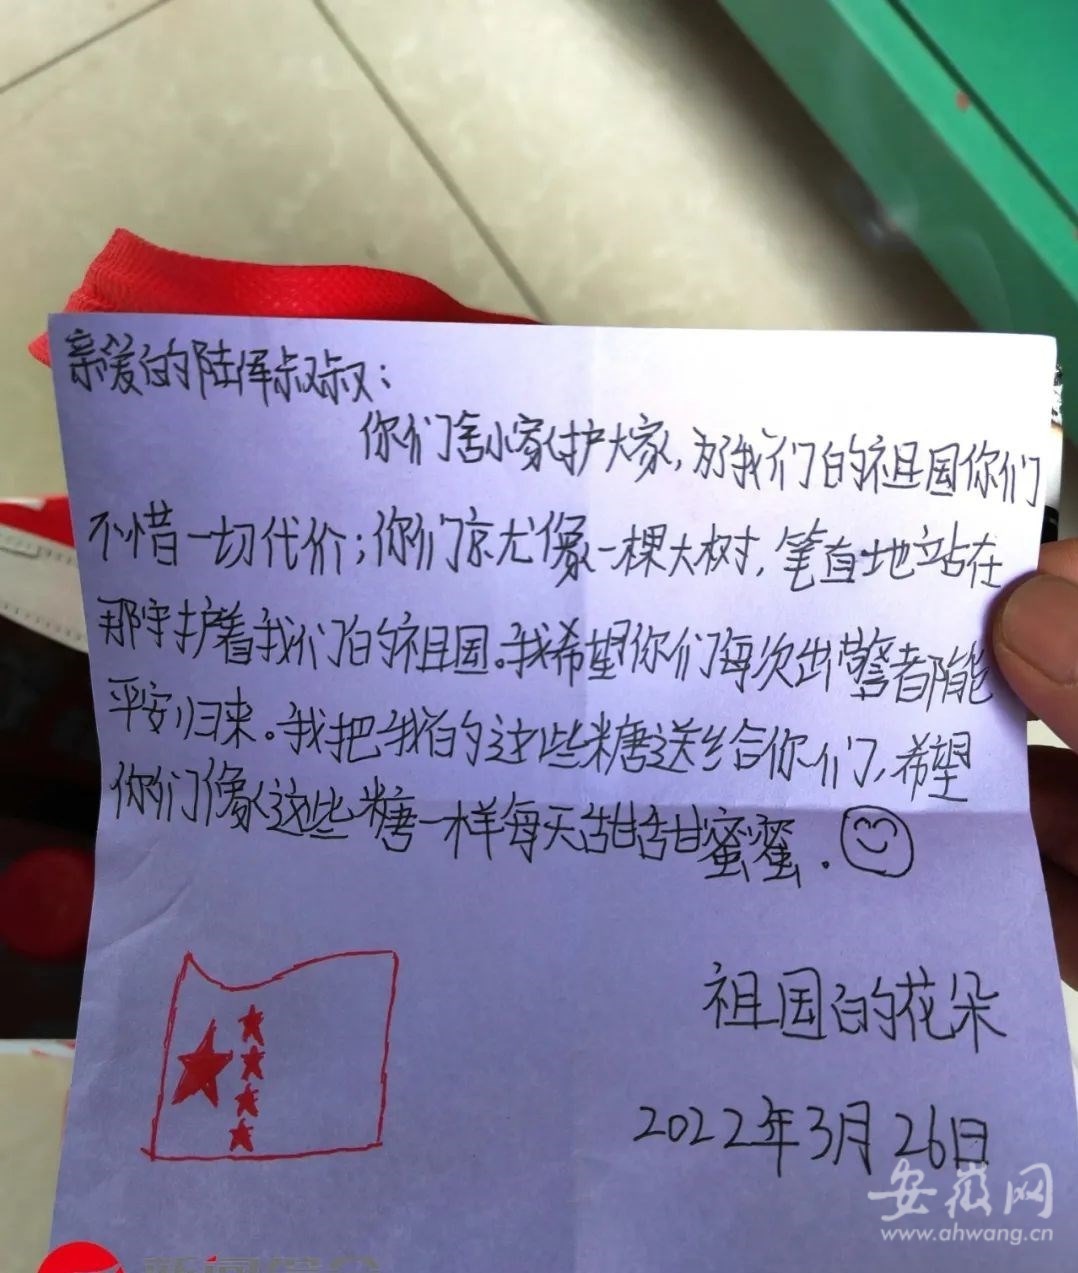 亲爱的陆晖叔叔：
你们舍小家护大家，为了我们的祖国你们
不惜一切代价；你们京尤像一棵大树，笔直地站在
那守护着我们的祖国。我希望你们每次出警都能
平安归来。我把我的这些糖送给你们，希望
你们像这些糖一样每天甜甜蜜蜜．
祖国的花朵
2022年3月26日
安徽网
www.ahwang.cn